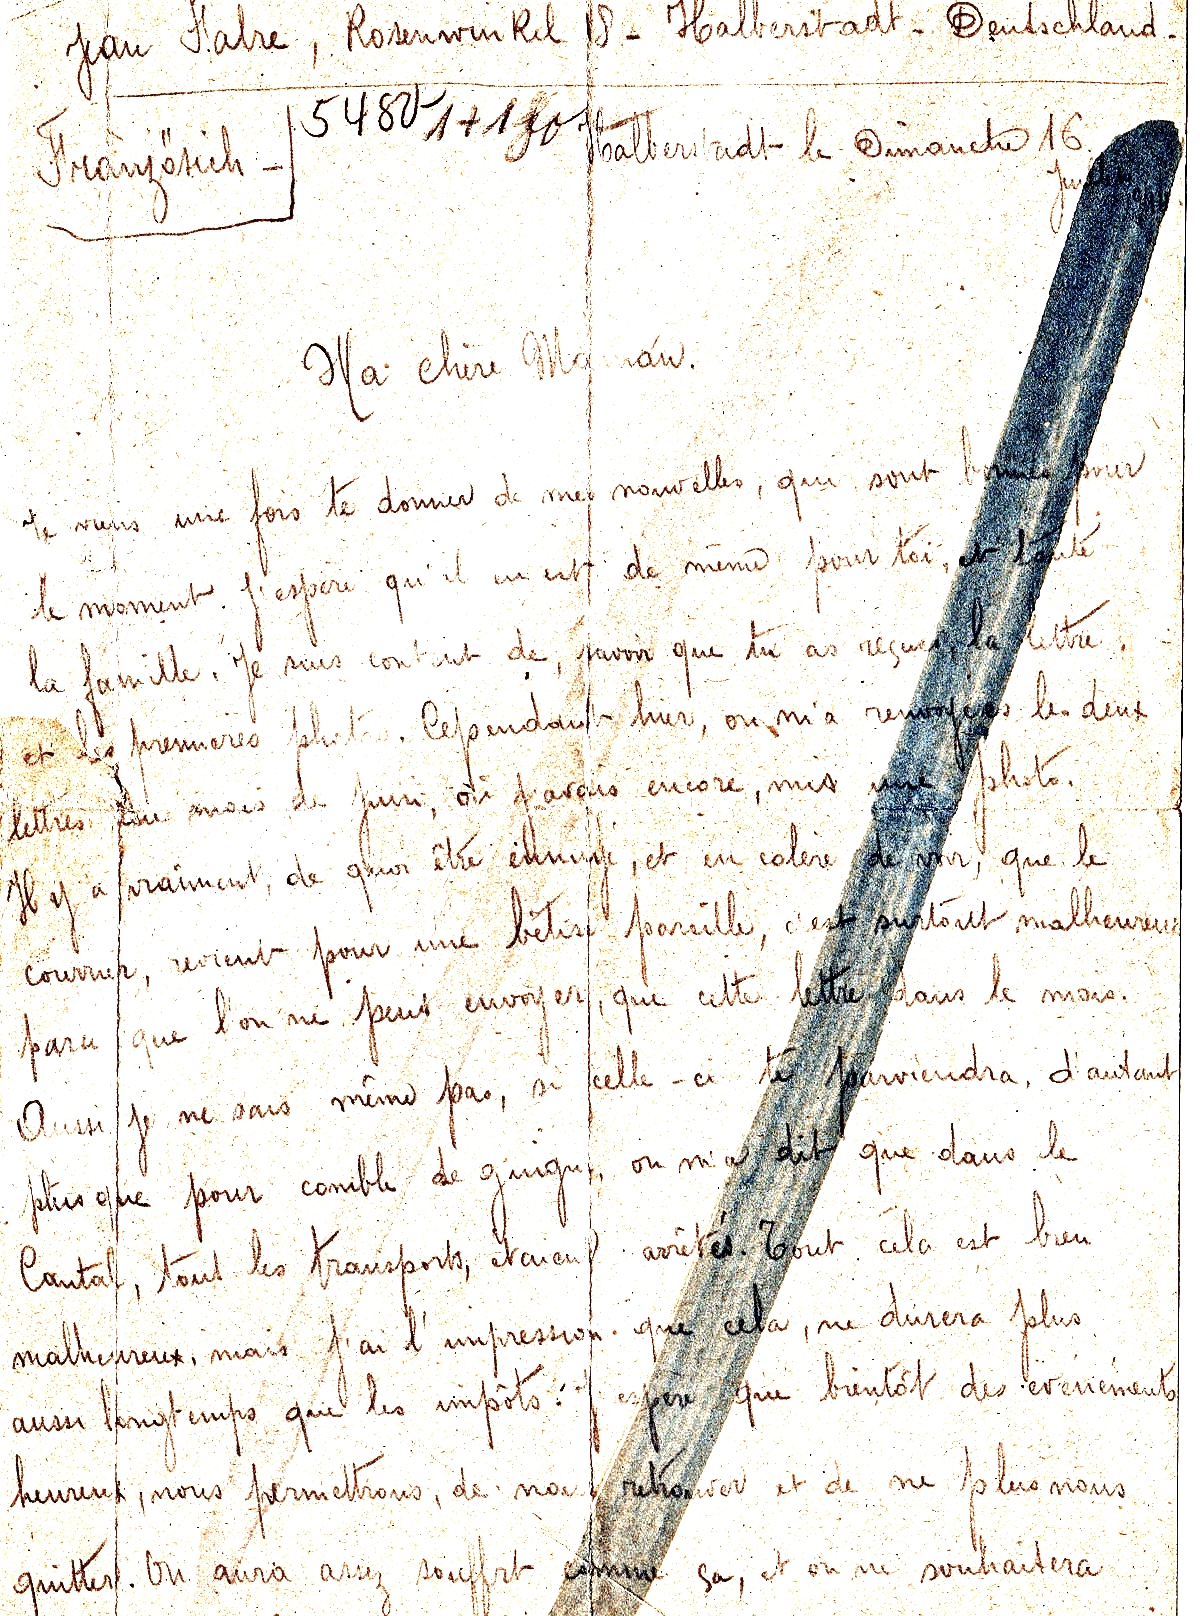 Jean Fabre, Rosenwinkel 18 - Halberstadt - Deutschland -
5480 1+1
Französich -
Halberstadt le Dimanche 16
Juillet
Ma chère Maman.
Je viens une fois te donner de mes nouvelles, qui sont bonnes pour
le moment. J'espère qu'il en est de même pour toi, et toute
la famille. Je suis content de, savoir que tu as reçues, la lettre.
et les premières photos. Cependant hier, on m'a renvoyées les deux
lettres du mois de Juin, où j'avais encore, mis une photo.
Il y a vraiment, de quoi être ennuyé, et en colère de voir, que le
courrier, revient pour une bêtise pareille, c'est surtout malheureux
parce que l'on ne peut envoyer, que cette lettre dans le mois.
Aussi je ne sais même pas, si celle-ci te parviendra, d'autant
plus que pour comble de guigne, on m'a dit que dans le
Cantal, tout les transports, étaient arrêtés. Tout cela est bien
malheureux, mais j'ai l'impression que cela, ne durera plus
aussi longtemps que les impôts! J'espère que bientôt des évènéments
heureux, nous permettrons, de nous retrouver et de ne plus nous
quitter. On aura assez souffert comme ça, et on ne souhaitera